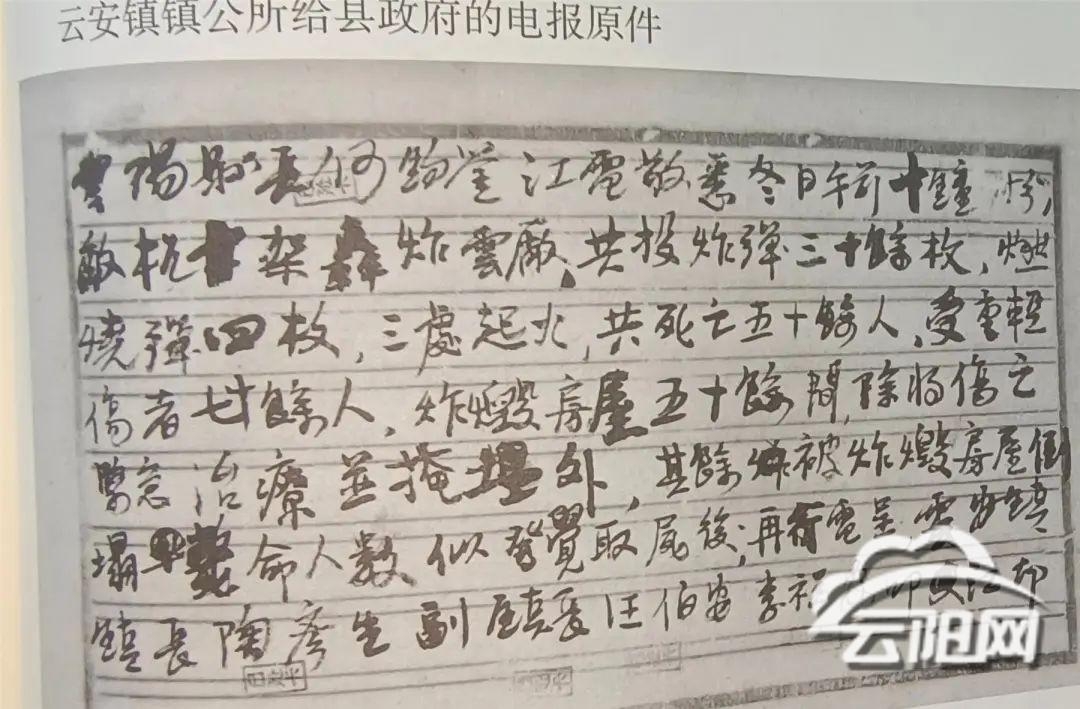 云安镇镇公所给县政府的电报原件
雲陽縣長何鈞鑒江電敬悉冬日午前十鐘時,
敵机架轟炸雲廠,共投炸彈三十餘枚,燃
燒彈四枚,三處起火,共死亡五十餘人,受重輕
傷者七十餘人,炸燬房屋五十餘間,除將傷亡
緊急治療並掩埋外,其餘被炸燬房屋倒
塌斃命人數似發覺取屍後,再行電呈雲安鎮
鎮長陶彥生副鎮長汪伯安李
云阳网